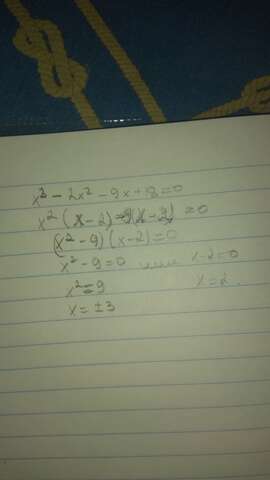 x³ - 2x² - 9x + 8 = 0
x² (x - 2) - 9(x - 2) = 0
(x² - 9)(x - 2) = 0
x² - 9 = 0 x - 2 = 0
x² = 9 x = 2.
x = ±3